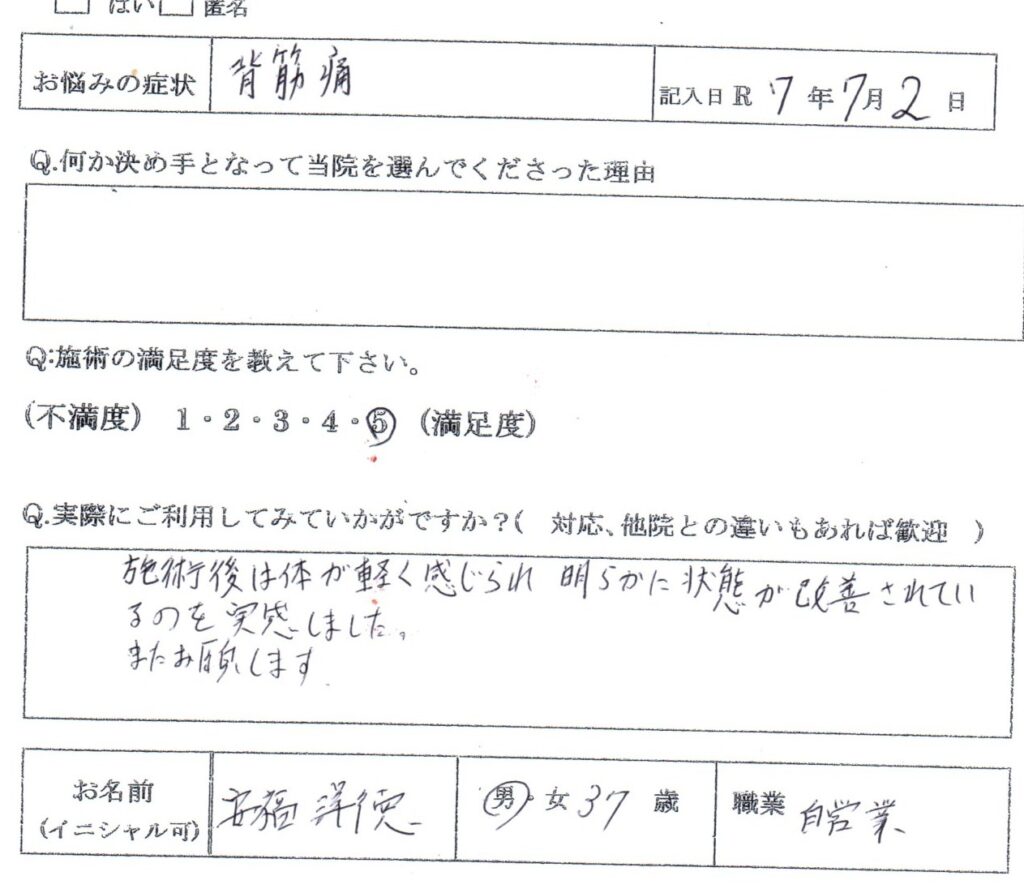 はい 匿名
お悩みの症状 背筋痛 記入日 R 7 年 7 月 2 日
Q.何か決め手となって当院を選んでくださった理由
Q:施術の満足度を教えて下さい。
(不満度) 1・2・3・4・5 (満足度)
Q.実際にご利用してみていかがですか?( 対応、他院との違いもあれば歓迎 )
施術後は体が軽く感じられ 明らかに状態が改善されてい
るのを実感しました。
またお願します
お名前 安福 洋徳 男・女 37 歳 職業 自営業
(イニシャル可)